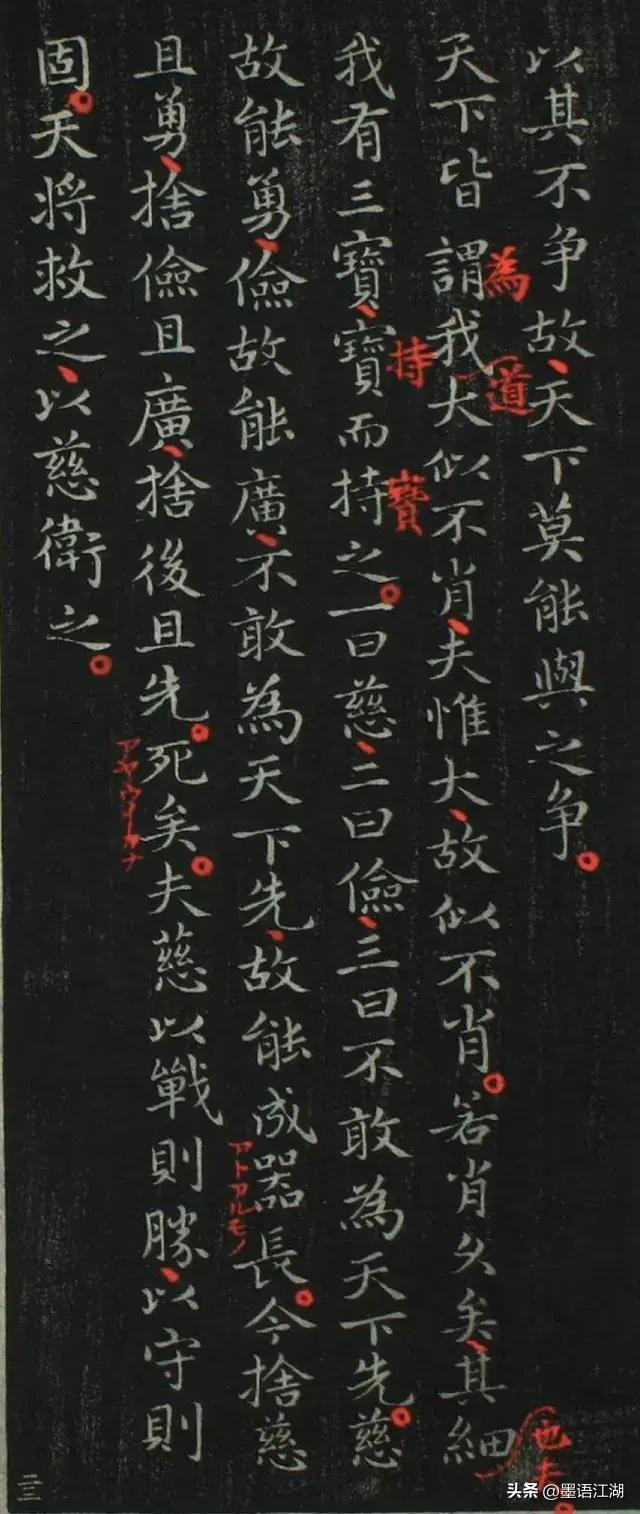 以其不争故天下莫能與之争
天下皆謂我大似不肖夫惟大故似不肖若肖久矣其細
為
道
也夫
我有三寶寶而持之一曰慈二曰儉三曰不敢為天下先慈
持
寶
故能勇儉故能廣不敢為天下先故能成器長今捨慈
アトアルモノ
且勇捨儉且廣捨後且先死矣夫慈以戰則勝以守則
固天將救之以慈衛之
二三
头条 @墨语江湖